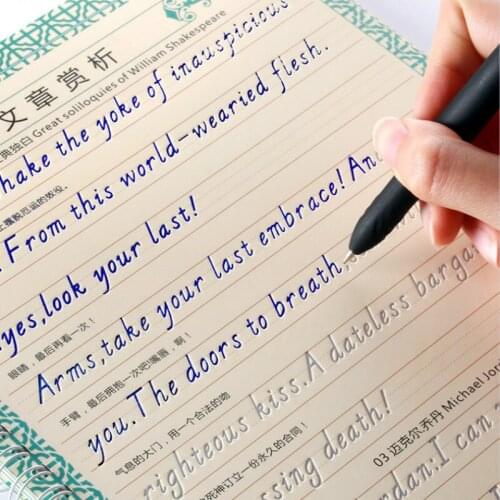 文章赏析
典独白 Great soliloquies of William Shakespeare
shake the yoke of inauspicious
From this world-wearied flesh.
yes,look your last!
眼睛，最后再看一次！
Arms,take your last embrace! And
手臂，最后拥抱一次吧!嘴唇，啊！
you.The doors to breath,
气息的大门，用一个合法的吻
righteous kiss.A dateless bargain
死神订立一份永久的合同！
death!
03 迈克尔·乔丹 Michael Jor
:I can